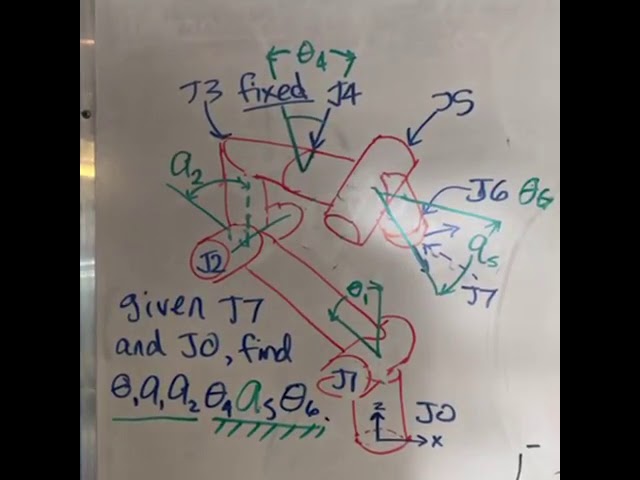 θ4
J3 fixed J4
J5
a2
J6 θ6
a5
J7
J2
θ1
given J7
and J0, find
θ, a, a2 θ4 a5 θ6.
J1
J0
z
x